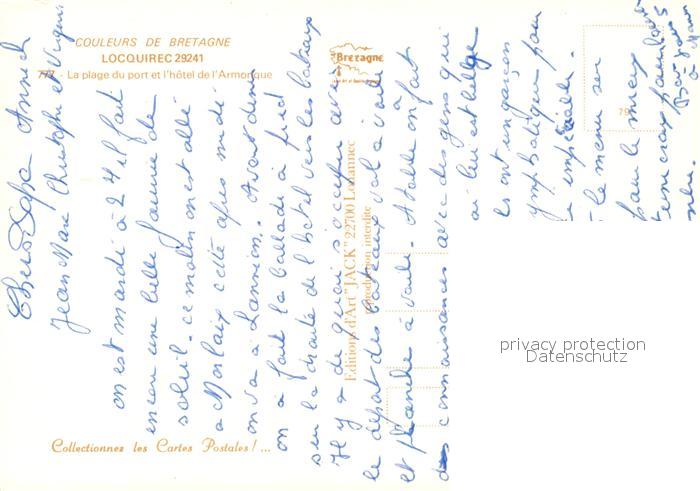 COULEURS DE BRETAGNE
LOCQUIREC 29241
777 - La plage du port et l'hôtel de l'Armorique
Bretagne
79
Editions d'Art "JACK" 22700 Louannec
reproduction interdite
Collectionnez les Cartes Postales ! ...
privacy protection
Datenschutz
Chers Papa Annick
Jean Marc Christophe et
on est mardi à 2 H il fait
encore une belle journée de
soleil. ce matin on est allé
a Morlaix cette après midi
on va a Lannion. Avant dîner
on a fait la ballade à pied
sur la droite de l'hotel vers les bateaux
Il y a de quoi s'occuper avec
le départ des bateaux vol à voile
et planche à voile. A table on fait
des connaissances avec des gens qui
lui est belge
ils ont un garçon
sympathique
impeccable.
le menu
pour le mieux